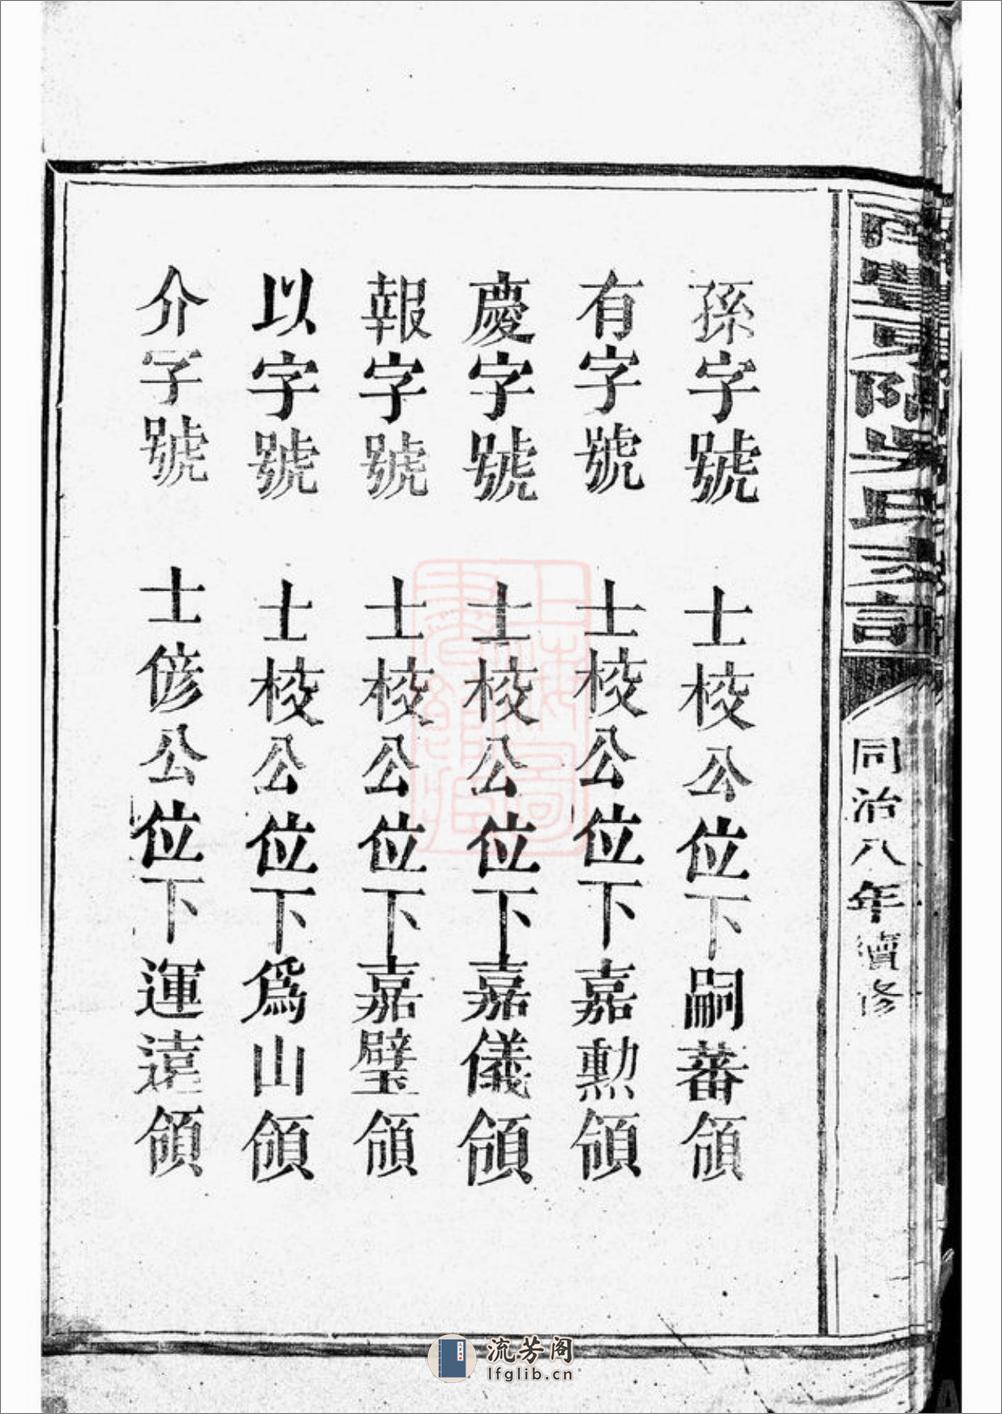 南豐東隅吳氏家譜
同治八年續修
孫字號 士校公位下嗣蕃領
有字號 士校公位下嘉勳領
慶字號 士校公位下嘉儀領
報字號 士校公位下嘉璧領
以字號 士校公位下為山領
介字號 士偐公位下運遠領
流芳阁
lfglib.cn